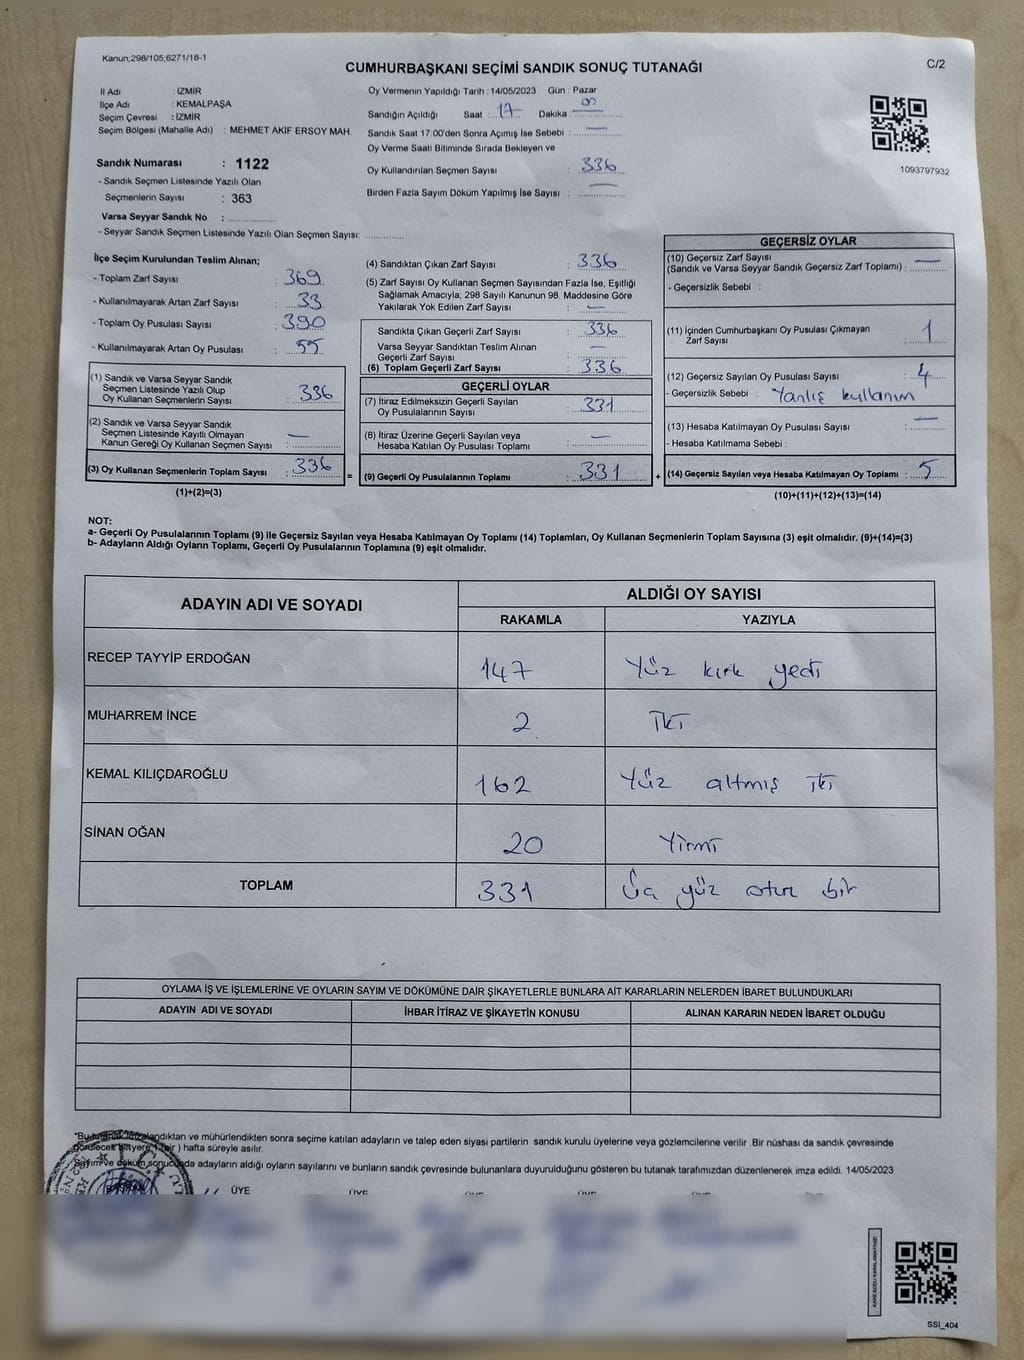 Kanun;298/105,6271/18-1
C/2
CUMHURBAŞKANI SEÇİMİ SANDIK SONUÇ TUTANAĞI
İl Adı : İZMİR
İlçe Adı : KEMALPAŞA
Seçim Çevresi : İZMİR
Seçim Bölgesi (Mahalle Adı) : MEHMET AKİF ERSOY MAH.
Sandık Numarası : 1122
- Sandık Seçmen Listesinde Yazılı Olan
Seçmenlerin Sayısı : 363
Varsa Seyyar Sandık No :
- Seyyar Sandık Seçmen Listesinde Yazılı Olan Seçmen Sayısı:
Oy Vermenin Yapıldığı Tarih : 14/05/2023 Gün : Pazar
Sandığın Açıldığı Saat : 17 Dakika :
Sandık Saat 17:00'den Sonra Açımış İse Sebebi : —
Oy Verme Saati Bitiminde Sırada Bekleyen ve
Oy Kullandırılan Seçmen Sayısı : 336
Birden Fazla Sayım Döküm Yapılmış İse Sayısı : —
1093797932
İlçe Seçim Kurulundan Teslim Alınan;
- Toplam Zarf Sayısı : 369
- Kullanılmayarak Artan Zarf Sayısı : 33
- Toplam Oy Pusulası Sayısı : 390
- Kullanılmayarak Artan Oy Pusulası : 55
(1) Sandık ve Varsa Seyyar Sandık
Seçmen Listesinde Yazılı Olup
Oy Kullanan Seçmenlerin Sayısı : 336
(2) Sandık ve Varsa Seyyar Sandık
Seçmen Listesinde Kayıtlı Olmayan
Kanun Gereği Oy Kullanan Seçmen Sayısı : —
(3) Oy Kullanan Seçmenlerin Toplam Sayısı : 336 =
(1)+(2)=(3)
(4) Sandıktan Çıkan Zarf Sayısı : 336
(5) Zarf Sayısı Oy Kullanan Seçmen Sayısından Fazla İse, Eşitliği
Sağlamak Amacıyla; 298 Sayılı Kanunun 98. Maddesine Göre
Yakılarak Yok Edilen Zarf Sayısı : —
Sandıkta Çıkan Geçerli Zarf Sayısı : 336
Varsa Seyyar Sandıktan Teslim Alınan
Geçerli Zarf Sayısı : —
(6) Toplam Geçerli Zarf Sayısı : 336
GEÇERLİ OYLAR
(7) İtiraz Edilmeksizin Geçerli Sayılan
Oy Pusulalarının Sayısı : 331
(8) İtiraz Üzerine Geçerli Sayılan veya
Hesaba Katılan Oy Pusulası Toplamı : —
(9) Geçerli Oy Pusulalarının Toplamı : 331 +
GEÇERSİZ OYLAR
(10) Geçersiz Zarf Sayısı
(Sandık ve Varsa Seyyar Sandık Geçersiz Zarf Toplamı) : —
- Geçersizlik Sebebi :
(11) İçinden Cumhurbaşkanı Oy Pusulası Çıkmayan
Zarf Sayısı : 1
(12) Geçersiz Sayılan Oy Pusulası Sayısı : 4
- Geçersizlik Sebebi : Yanlış kullanım
(13) Hesaba Katılmayan Oy Pusulası Sayısı : —
- Hesaba Katılmama Sebebi :
(14) Geçersiz Sayılan veya Hesaba Katılmayan Oy Toplamı : 5
(10)+(11)+(12)+(13)=(14)
NOT:
a- Geçerli Oy Pusulalarının Toplamı (9) ile Geçersiz Sayılan veya Hesaba Katılmayan Oy Toplamı (14) Toplamları, Oy Kullanan Seçmenlerin Toplam Sayısına (3) eşit olmalıdır. (9)+(14)=(3)
b- Adayların Aldığı Oyların Toplamı, Geçerli Oy Pusulalarının Toplamına (9) eşit olmalıdır.
ADAYIN ADI VE SOYADI ALDIĞI OY SAYISI
RAKAMLA YAZIYLA
RECEP TAYYİP ERDOĞAN 147 Yüz kırk yedi
MUHARREM İNCE 2 İki
KEMAL KILIÇDAROĞLU 162 Yüz altmış iki
SİNAN OĞAN 20 Yirmi
TOPLAM 331 Üç yüz otuz bir
OYLAMA İŞ VE İŞLEMLERİNE VE OYLARIN SAYIM VE DÖKÜMÜNE DAİR ŞİKAYETLERLE BUNLARA AİT KARARLARIN NELERDEN İBARET BULUNDUKLARI
ADAYIN ADI VE SOYADI İHBAR İTİRAZ VE ŞİKAYETİN KONUSU ALINAN KARARIN NEDEN İBARET OLDUĞU
"Bu tutanak imzalandıktan ve mühürlendikten sonra seçime katılan adayların ve talep eden siyasi partilerin sandık kurulu üyelerine veya gözlemcilerine verilir. Bir nüshası da sandık çevresinde
görülecek bir yere 1 (bir) hafta süreyle asılır.
Sayım ve döküm sonucunda adayların aldığı oyların sayılarını ve bunların sandık çevresinde bulunanlara duyurulduğunu gösteren bu tutanak tarafımızdan düzenlenerek imza edildi. 14/05/2023
ÜYE ÜYE ÜYE ÜYE ÜYE
SSI_404